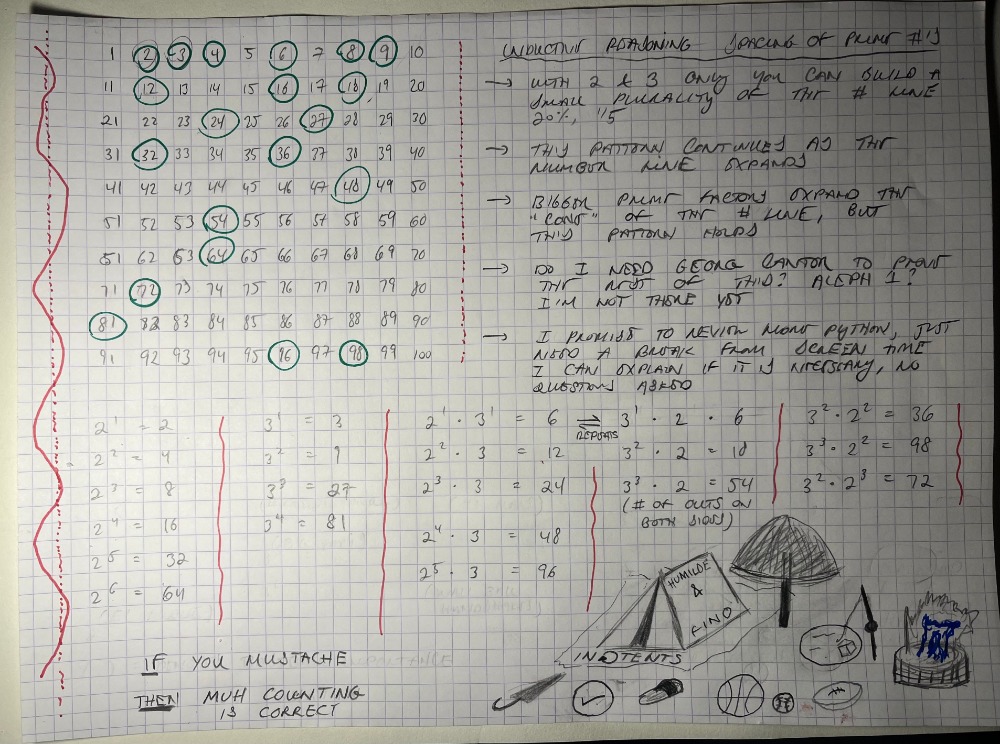 INDUCTIVE REASONING SPACING OF PRIME #'S
1 2 3 4 5 6 7 8 9 10
11 12 13 14 15 16 17 18 19 20
21 22 23 24 25 26 27 28 29 30
31 32 33 34 35 36 37 38 39 40
41 42 43 44 45 46 47 48 49 50
51 52 53 54 55 56 57 58 59 60
51 62 63 64 65 66 67 68 69 70
71 72 73 74 75 76 77 78 79 80
81 82 83 84 85 86 87 88 89 90
91 92 93 94 95 96 97 98 99 100
→ WITH 2 & 3 ONLY YOU CAN BUILD A
SMALL PLURALITY OF THE # LINE
20%, 1/5
→ THIS PATTERN CONTINUES AS THE
NUMBER LINE EXPANDS
→ BIGGER PRIME FACTORS EXPAND THE
"CONE" OF THE # LINE, BUT
THIS PATTERN HOLDS
→ DO I NEED GEORG CANTOR TO PROVE
THE REST OF THIS? ALEPH 1?
I'M NOT THERE YET
→ I PROMISE TO REVIEW MORE PYTHON, JUST
NEED A BREAK FROM SCREEN TIME
I CAN EXPLAIN IF IT IS NECESSARY, NO
QUESTIONS ASKED
2¹ = 2
2² = 4
2³ = 8
2⁴ = 16
2⁵ = 32
2⁶ = 64
3¹ = 3
3² = 9
3³ = 27
3⁴ = 81
2¹ · 3¹ = 6 ⇌ 3¹ · 2 · 6
REPEATS
2² · 3 = 12
2³ · 3 = 24
2⁴ · 3 = 48
2⁵ · 3 = 96
3² · 2 = 18
3³ · 2 = 54
(# OF OUTS ON
BOTH SIDES)
3² · 2² = 36
3³ · 2² = 98
3² · 2³ = 72
IF YOU MUSTACHE
THEN MUH COUNTING
IS CORRECT
HUMILDE
&
FINO
INOTENTS